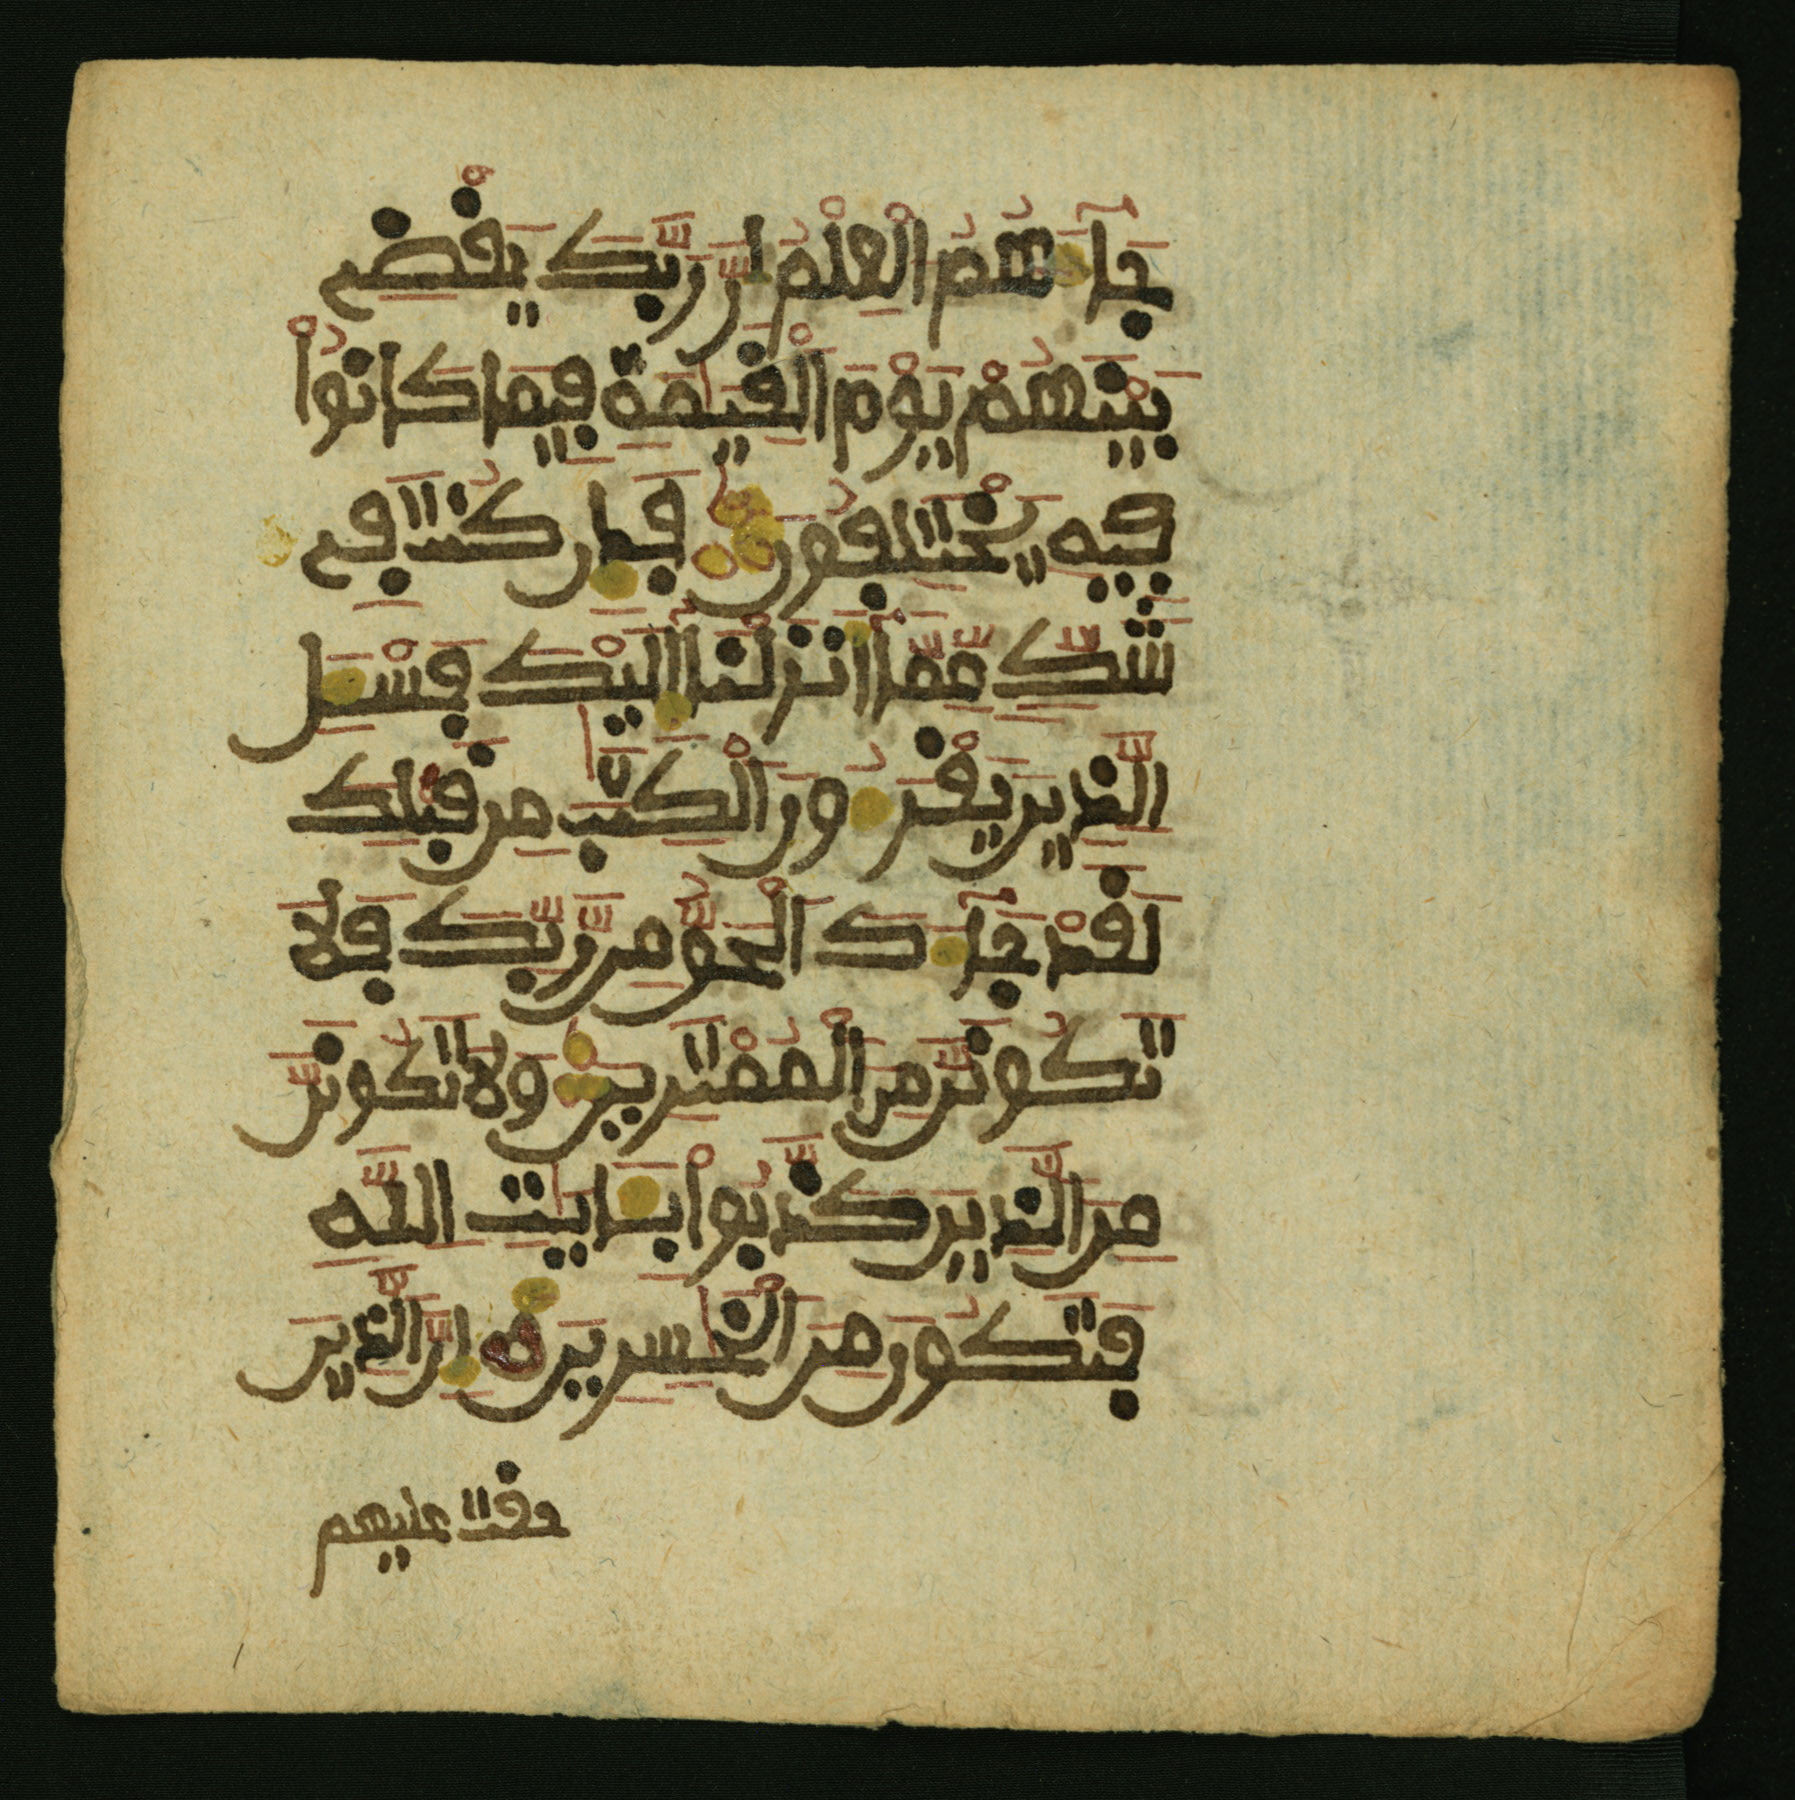 جَآءَهُمُ الْعِلْمُ إِنَّ رَبَّكَ يَقْضِے
بَيْنَهُمْ يَوْمَ الْقِيَٰمَةِ فِيمَا كَانُواْ
فِيهِ يَخْتَلِفُونَ فَإِن كُنتَ فِے
شَكٍّ مِّمَّآ أَنزَلْنَآ إِلَيْكَ فَسْـَٔلِ
الَّذِينَ يَقْرَءُونَ الْكِتَٰبَ مِن قَبْلِكَ
لَقَدْ جَآءَكَ الْحَقُّ مِن رَّبِّكَ فَلَا
تَكُونَنَّ مِنَ الْمُمْتَرِينَ وَلَا تَكُونَنَّ
مِنَ الَّذِينَ كَذَّبُواْ بِـَٔايَٰتِ اللَّهِ
فَتَكُونَ مِنَ الْخَٰسِرِينَ إِنَّ الَّذِينَ
حقت عليهم